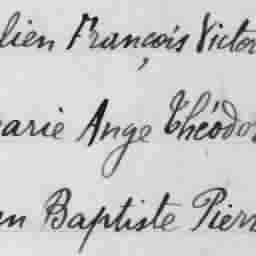 lien François Victor
arie Ange Théodo
en Baptiste Pierr